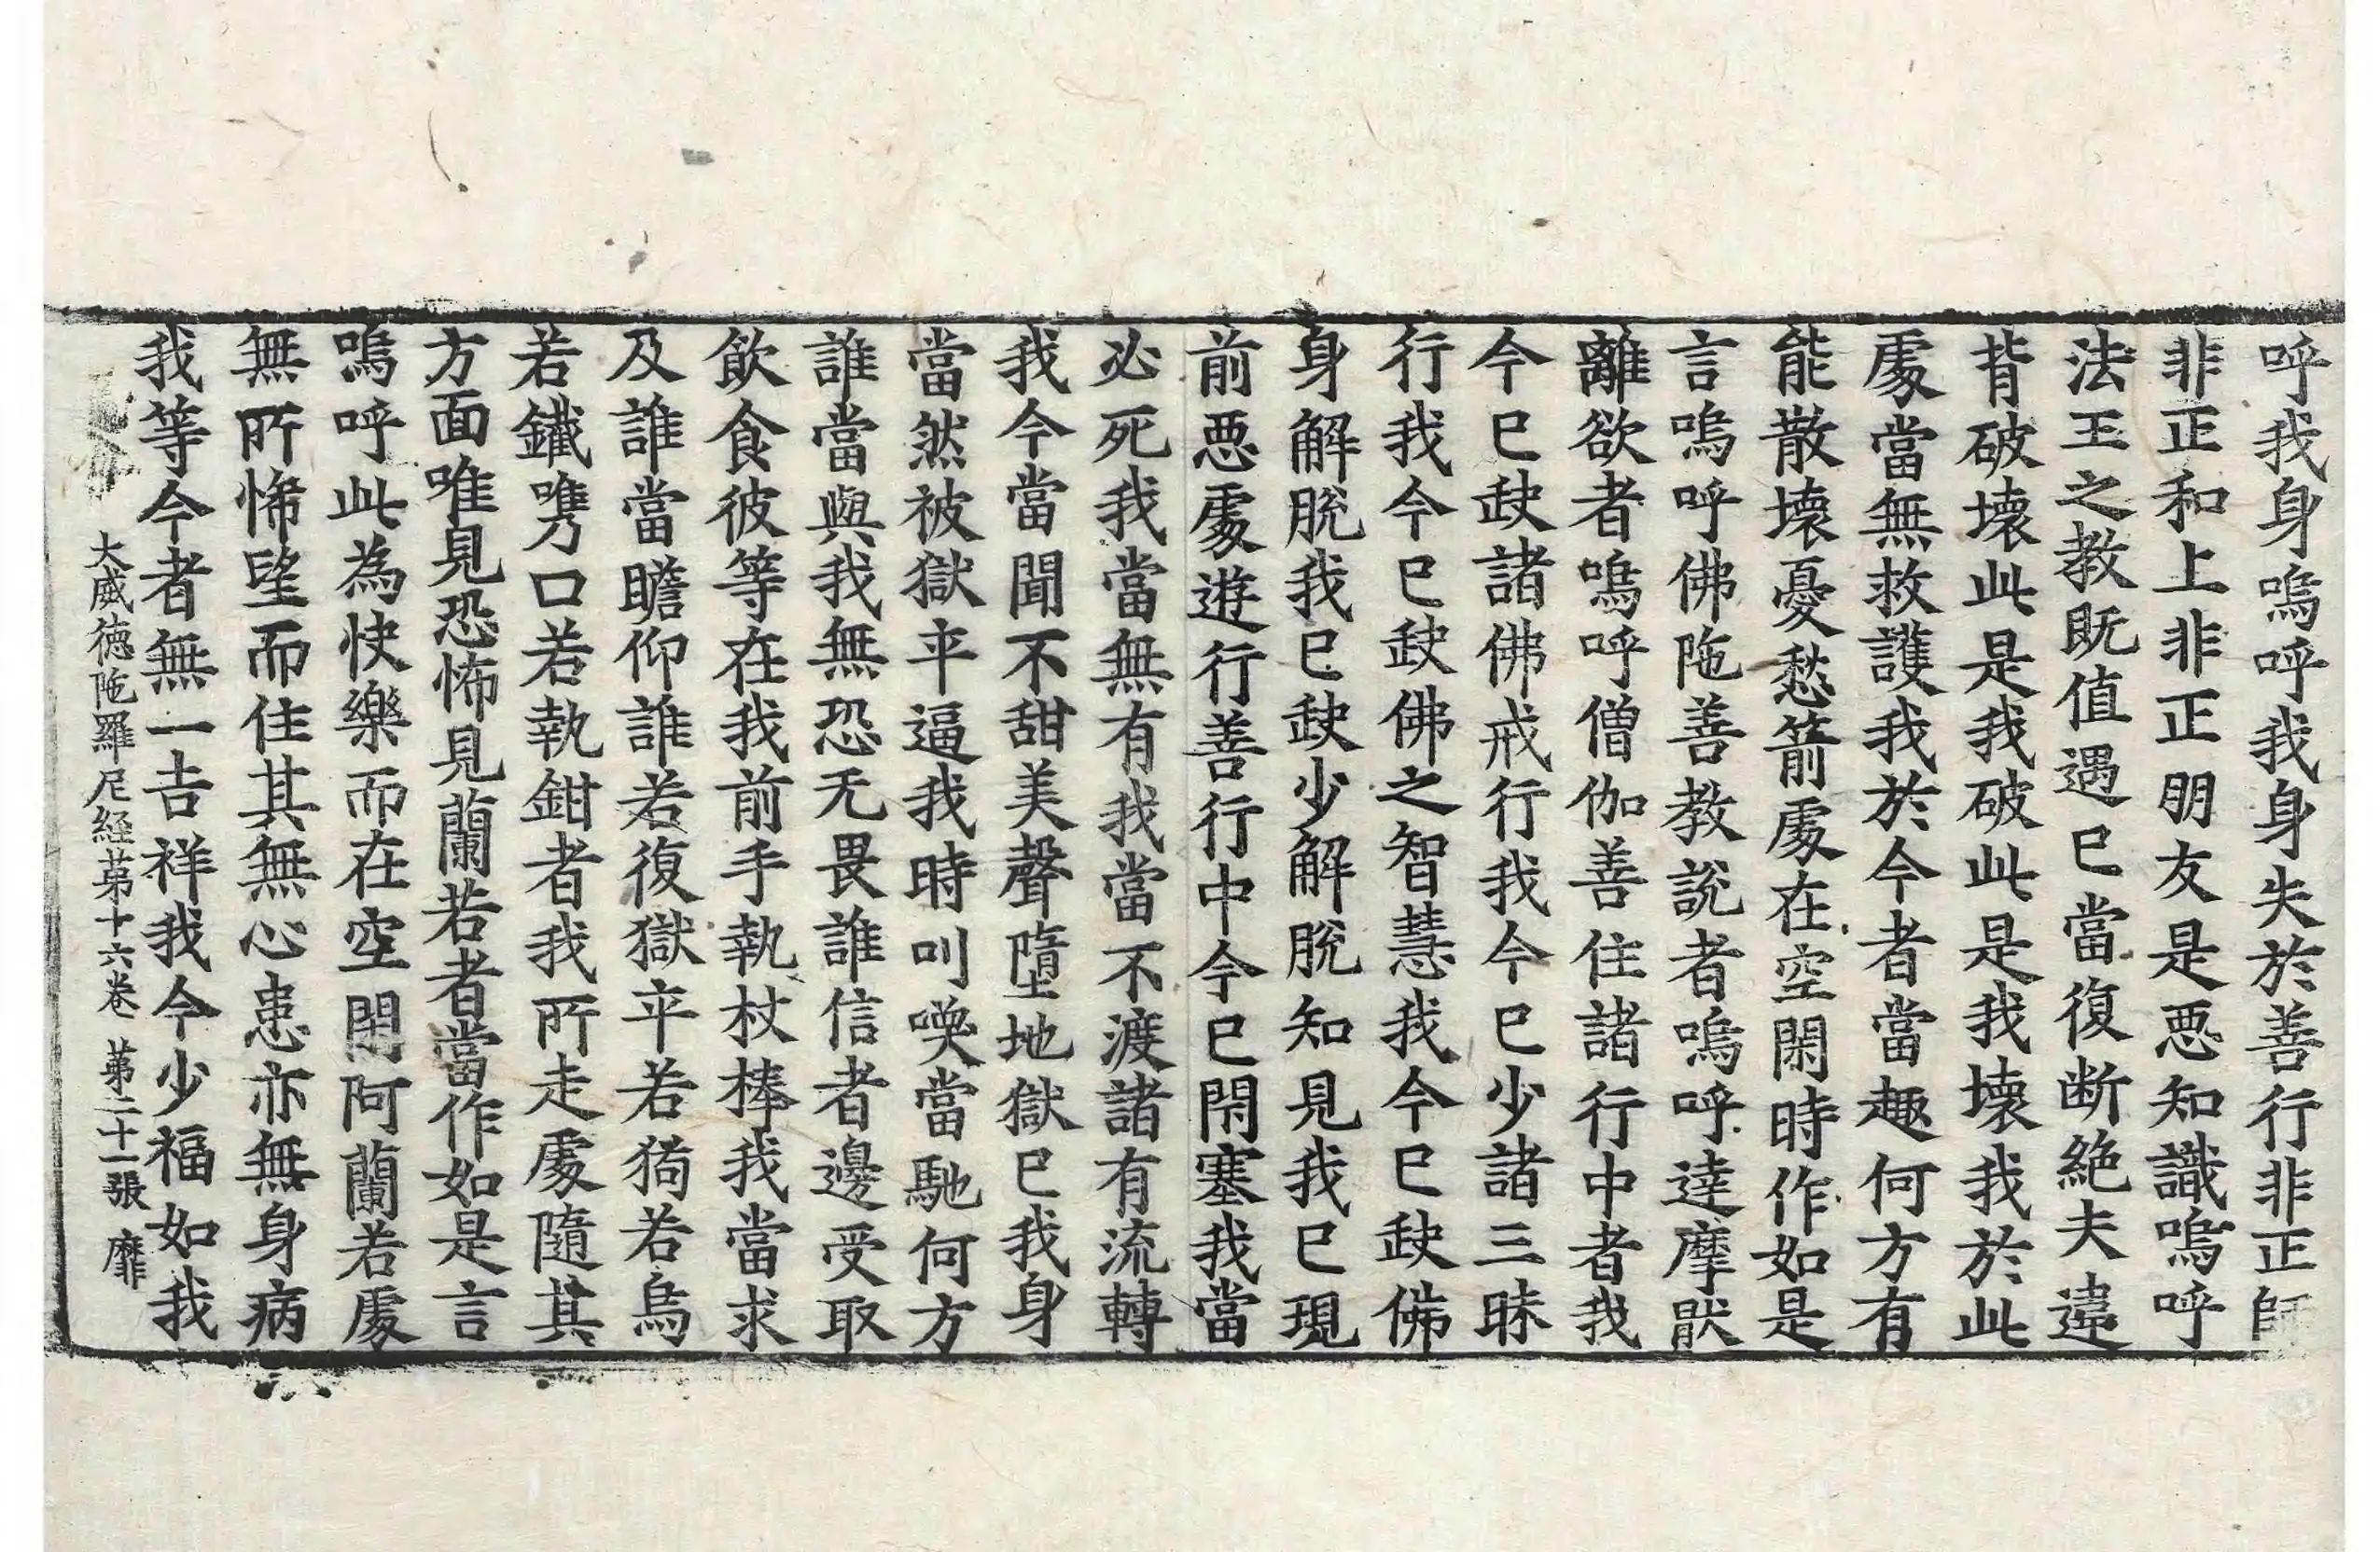 呼我身嗚呼我身失於善行非正師
非正和上非正朋友是悪知識嗚呼
法王之教既值遇已當復断絶夫違
背破壞此是我破此是我壞我於此
處當無救護我於今者當趣何方有
能散壞憂愁箭處在空閑時作如是
言嗚呼佛陁善教説者嗚呼達摩猒
離欲者嗚呼僧伽善住諸行中者我
今已缺諸佛戒行我今已少諸三昧
行我今已缺佛之智慧我今已缺佛
身解脫我已缺少解脫知見我已現
前悪處遊行善行中今已閇塞我當
必死我當無有我當不渡諸有流轉
我今當聞不甜美聲墮地獄已我身
當然被獄卒逼我時叫喚當馳何方
誰當與我無恐无畏誰信者邊受取
飲食彼等在我前手執杖棒我當求
及誰當瞻仰誰若復獄卒若狗若烏
若鐵嘴口若執鉗者我所走處隨其
方面唯見恐怖見蘭若者當作如是言
嗚呼此為快樂而在空閑阿蘭若處
無所悕望而住其無心患亦無身病
我等今者無一吉祥我今少福如我
大威徳陁羅尼経苐十六卷 苐二十一張 靡